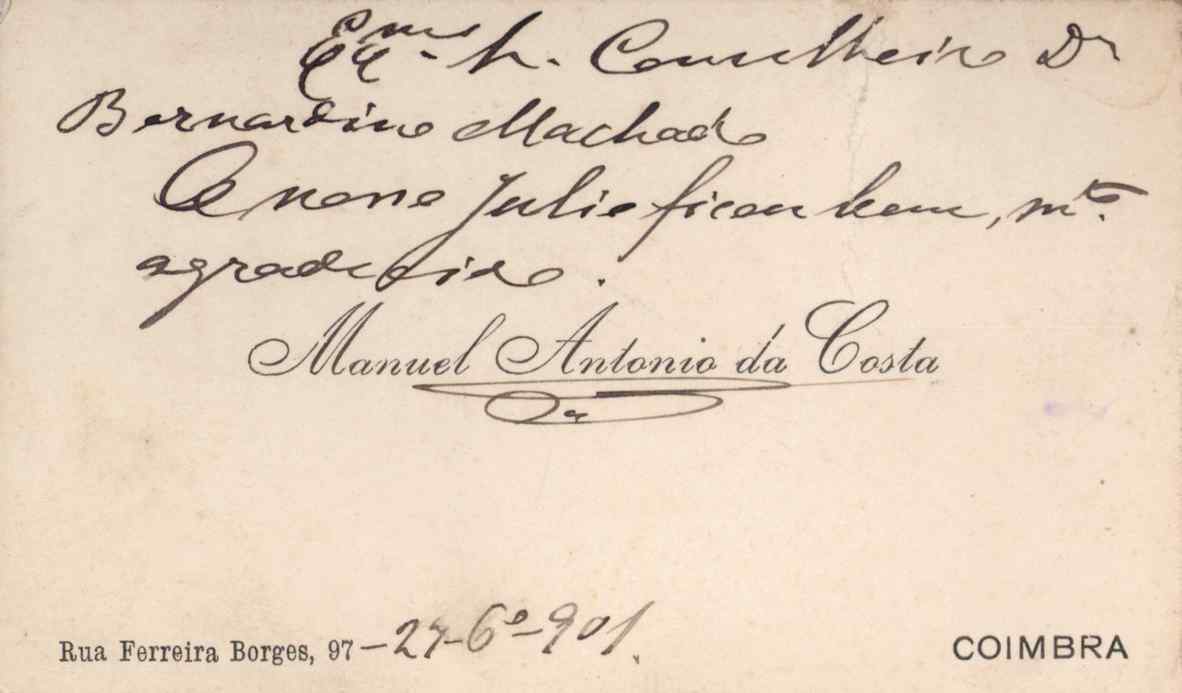 Exmo Sr. Conselheiro Dr
Bernardino Machado
O nosso Julio ficou bem, mto.
agradecido.
Manuel Antonio da Costa
Rua Ferreira Borges, 97 – 27-6º-901.
COIMBRA